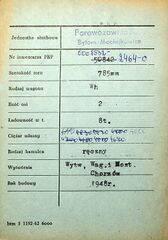 Jednostka służbowa Parowozownia
Bytom Maciejkowice
Nr inwentarza PKP 50842 2464-0
Szerokość toru 785mm
Rodzaj wagonu Wh
Ilość osi 2
Ładowność w t. 8t.
Ciężar własny
Rodzaj hamulca ręczny
Wytwórnia Wytw. Wag. i Most.
Chorzów
Rok budowy 1948r.